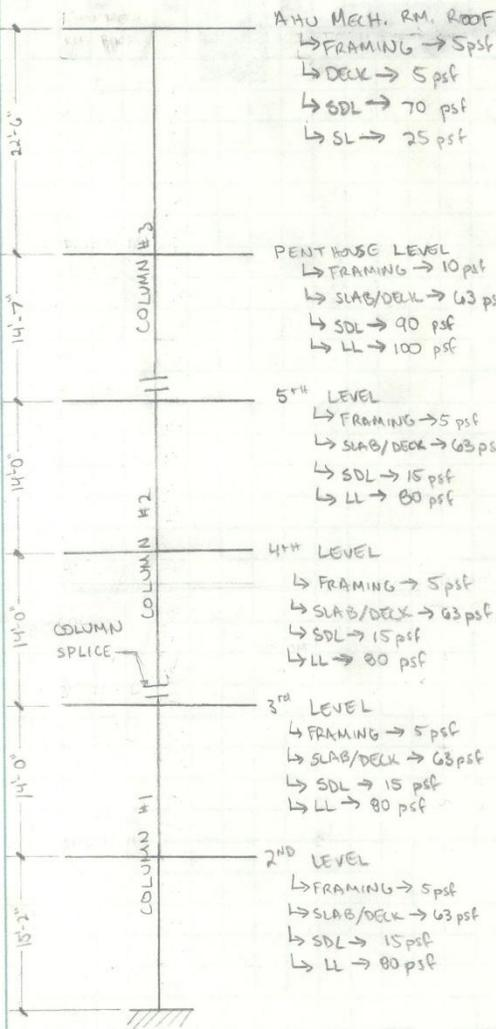 AHU MECH. RM. ROOF
↳ FRAMING → 5 psf
↳ DECK → 5 psf
↳ SDL → 70 psf
↳ SL → 25 psf
22'-6"
COLUMN #3
PENTHOUSE LEVEL
↳ FRAMING → 10 psf
↳ SLAB/DECK → 63 psf
↳ SDL → 90 psf
↳ LL → 100 psf
14'-7"
5TH LEVEL
↳ FRAMING → 5 psf
↳ SLAB/DECK → 63 ps
↳ SDL → 15 psf
↳ LL → 80 psf
14'-0"
COLUMN #2
4TH LEVEL
↳ FRAMING → 5 psf
↳ SLAB/DECK → 63 psf
↳ SDL → 15 psf
↳ LL → 80 psf
14'-0"
COLUMN
SPLICE
3rd LEVEL
↳ FRAMING → 5 psf
↳ SLAB/DECK → 63 psf
↳ SDL → 15 psf
↳ LL → 80 psf
14'-0"
COLUMN #1
2ND LEVEL
↳ FRAMING → 5 psf
↳ SLAB/DECK → 63 psf
↳ SDL → 15 psf
↳ LL → 80 psf
15'-2"